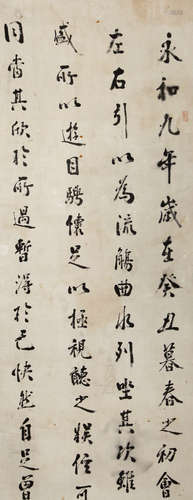 永和九年歲在癸丑暮春之初會
左右引以為流觴曲水列坐其次雖
盛所以遊目騁懷足以極視聽之娛信可
同當其欣於所遇暫得於己快然自足曾